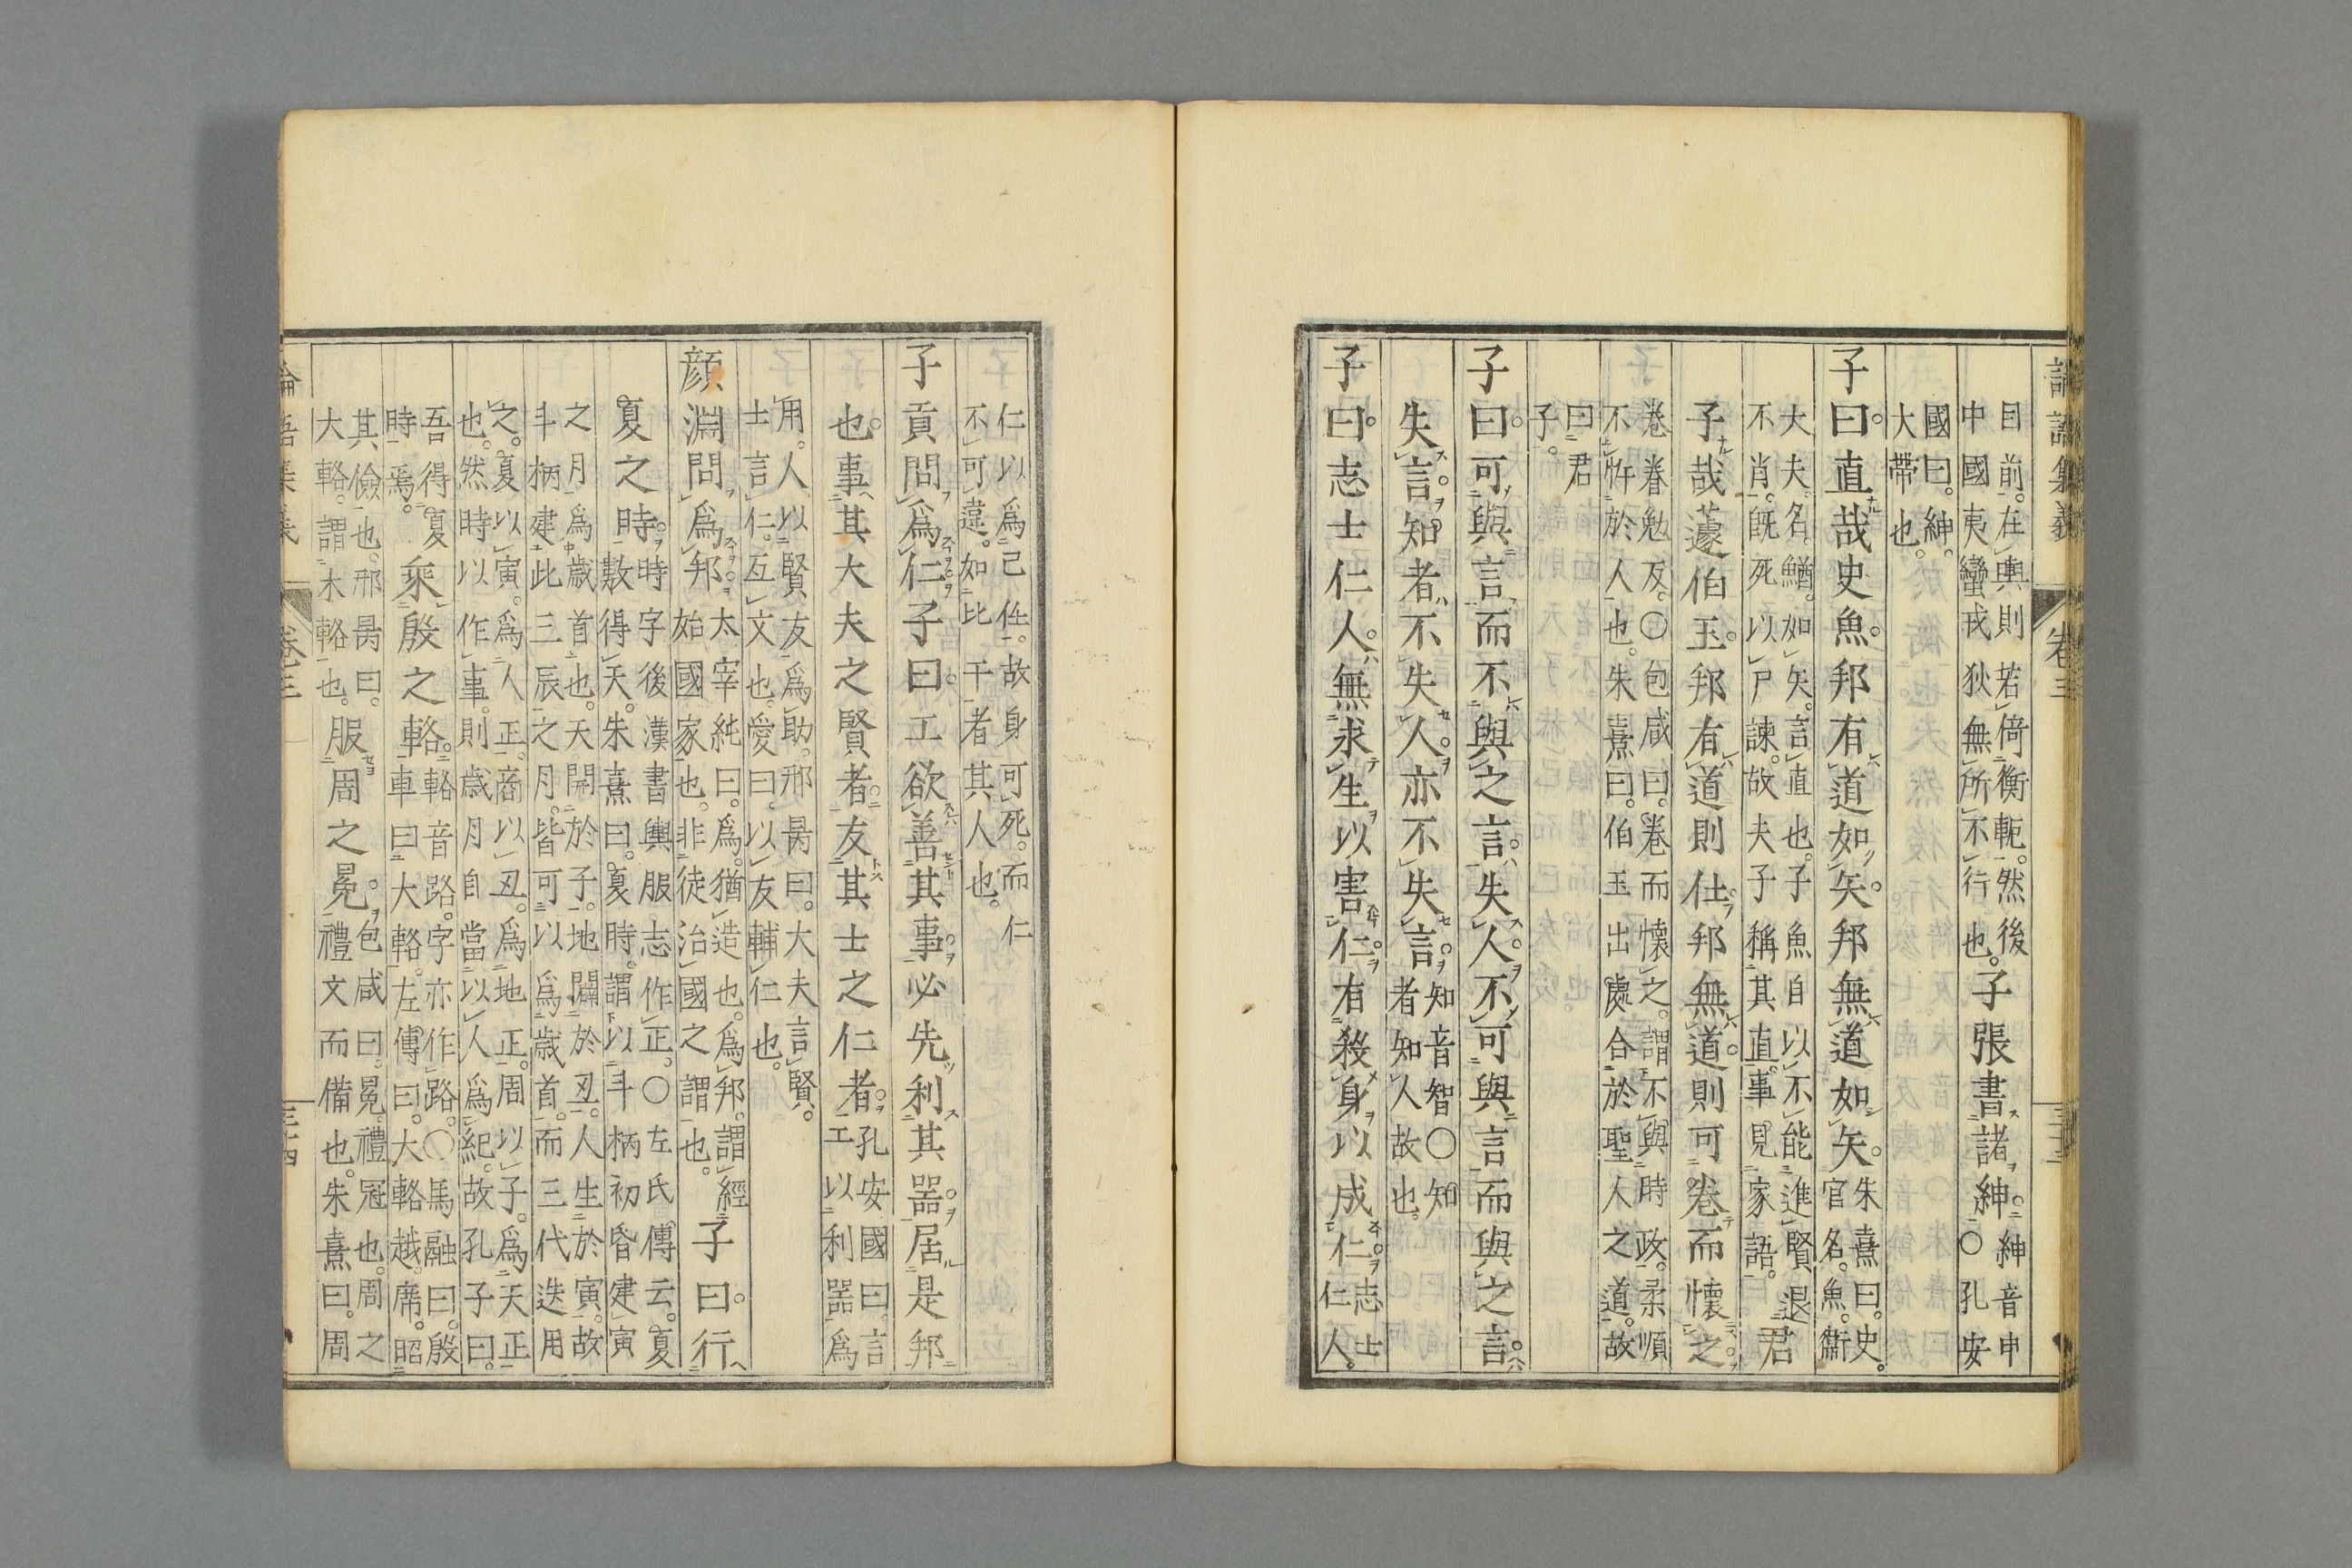 論語集義 卷三 三十三
目前。在輿則若倚衡軛。然後
中國夷蠻戎狄無所不行也。子張書諸紳。紳音申
〇孔安
國曰。紳。
大帶也。
子曰。直哉史魚。邦有道如矢。邦無道如矢。朱熹曰。史。
官名。魚。衞
大夫。名鰌。如矢。言直也。子魚自以不能進賢退
不肖。既死以尸諫。故夫子稱其直。事見家語。君
子哉蘧伯玉。邦有道則仕。邦無道。則可卷而懷之。
卷眷勉反。〇包咸曰。卷而懷之。謂不與時政。柔順
不忤於人也。朱熹曰。伯玉出處合於聖人之道。故
曰君
子。
子曰。可與言而不與之言。失人。不可與言而與之言。
失言。知者不失人。亦不失言。知音智〇知
者知人故也。
子曰。志士仁人。無求生以害仁。有殺身以成仁。志士
仁人。
仁以爲己任。故身可死。而仁
不可違。如比干者其人也。
子貢問爲仁。子曰。工欲善其事。必先利其器。居是邦
也。事其大夫之賢者。友其士之仁者。孔安國曰。言
工以利器爲
用。人以賢友爲助。邢昺曰。大夫言賢。
士言仁。互文也。愛曰。以友輔仁也。
顔淵問爲邦。太宰純曰。爲。猶造也。爲邦。謂經
始國家也。非徒治國之謂也。子曰。行
夏之時。時字後漢書輿服志作正。〇左氏傳云。夏
數得天。朱熹曰。夏時。謂以斗柄初昏建寅
之月爲歲首也。天開於子。地闢於丑。人生於寅。故
斗柄建此三辰之月。皆可以爲歲首。而三代迭用
之。夏以寅。爲人正。商以丑。爲地正。周以子。爲天正
也。然時以作事。則歲月自當以人爲紀。故孔子曰。
吾得夏
時焉。乘殷之輅。輅音路。字亦作路。〇馬融曰。殷
車曰大輅。左傳曰。大輅越席。昭
其儉也。邢昺曰。
大輅。謂木輅也。服周之冕。包咸曰。冕。禮冠也。周之
禮文而備也。朱熹曰。周
論語集義 卷三 三十四